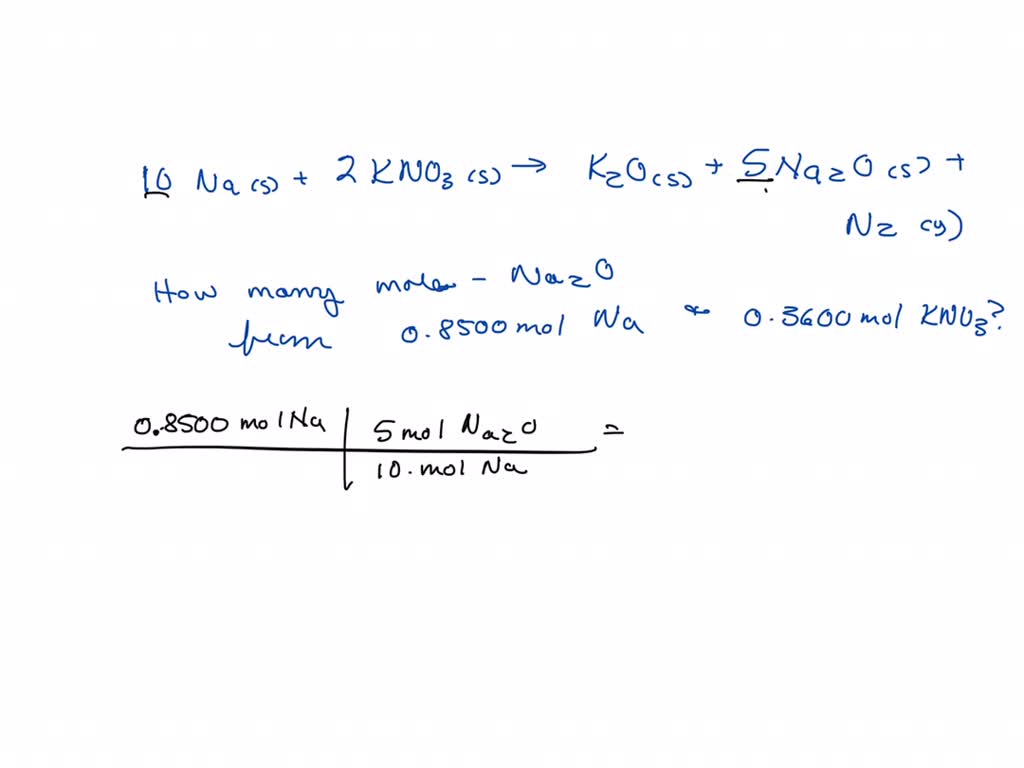 10 Na (s) + 2 KNO3 (s) → K2O (s) + 5 Na2O (s) +
N2 (g)
How many mole - Na2O
from 0.8500 mol Na 0.3600 mol KNO3?
0.8500 mol Na | 5 mol Na2O =
10. mol Na